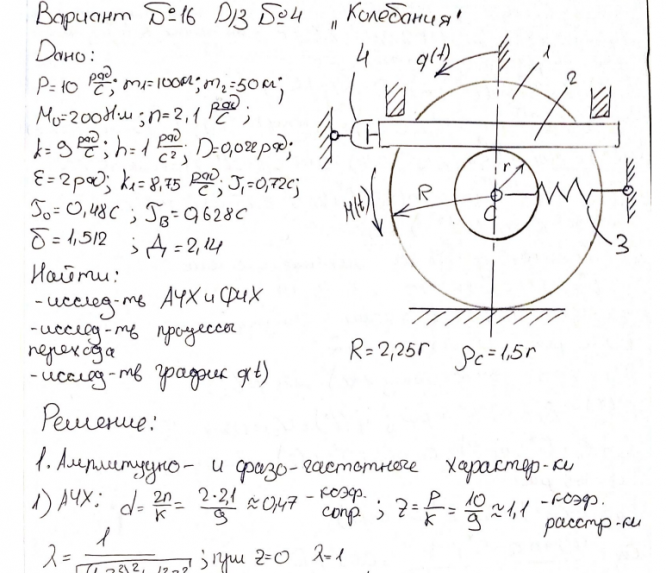 Вариант №16 Д/З №4 „Колебания"
Дано:
P=10 рад/с; m1=100кг; m2=50кг;
M0=200Нм; n=2,1 рад/с;
k=9 рад/с; h=1 рад/с²; D=0,022рад;
ε=2рад; k1=8,75 рад/с; T1=0,72с;
T0=0,48с; TB=0,628с
δ=1,512; Д=2,14
Найти:
-исслед-ть АЧХ и ФЧХ
-исслед-ть процессы
перехода
-исслед-ть график q(t)
q(t)
1
2
4
r
R
C
M(t)
3
R=2,25r ρc=1,5r
Решение:
1. Амплитудно- и фазо-частотные характер-ки
1) АЧХ: d= 2n/k = 2·2,1/9 ≈0,47 -коэф. сопр.; z= P/k = 10/9 ≈1,1 -коэф. расстр-ки
λ= 1 ; при z=0 λ=1